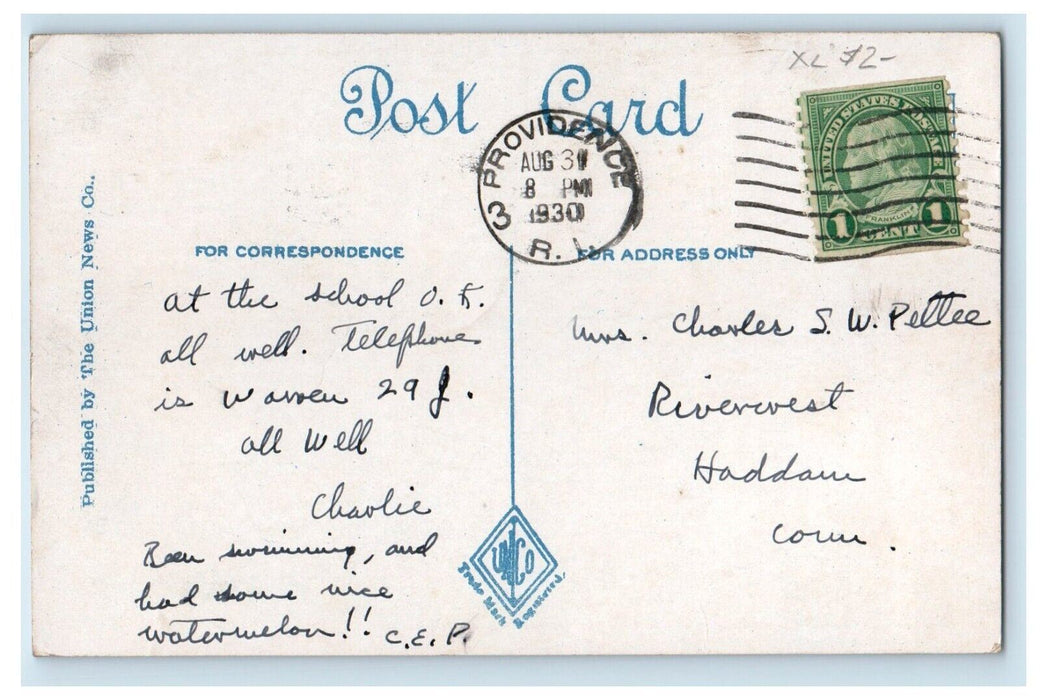 XL $2-
Post Card
UNITED STATES POSTAGE
FRANKLIN
1 CENT 1
PROVIDENCE
AUG 31
8 PM
1930
3 R.I.
Published by The Union News Co..
FOR CORRESPONDENCE
FOR ADDRESS ONLY
at the school O.K.
all well. Telephone
is Warren 29 J.
all well
Charlie
Been swimming, and
had some nice
watermelon!! C.E.P.
Mrs. Charles S. W. Pettee
Rivercrest
Haddam
Conn.
UNCo
Trade Mark Registered.